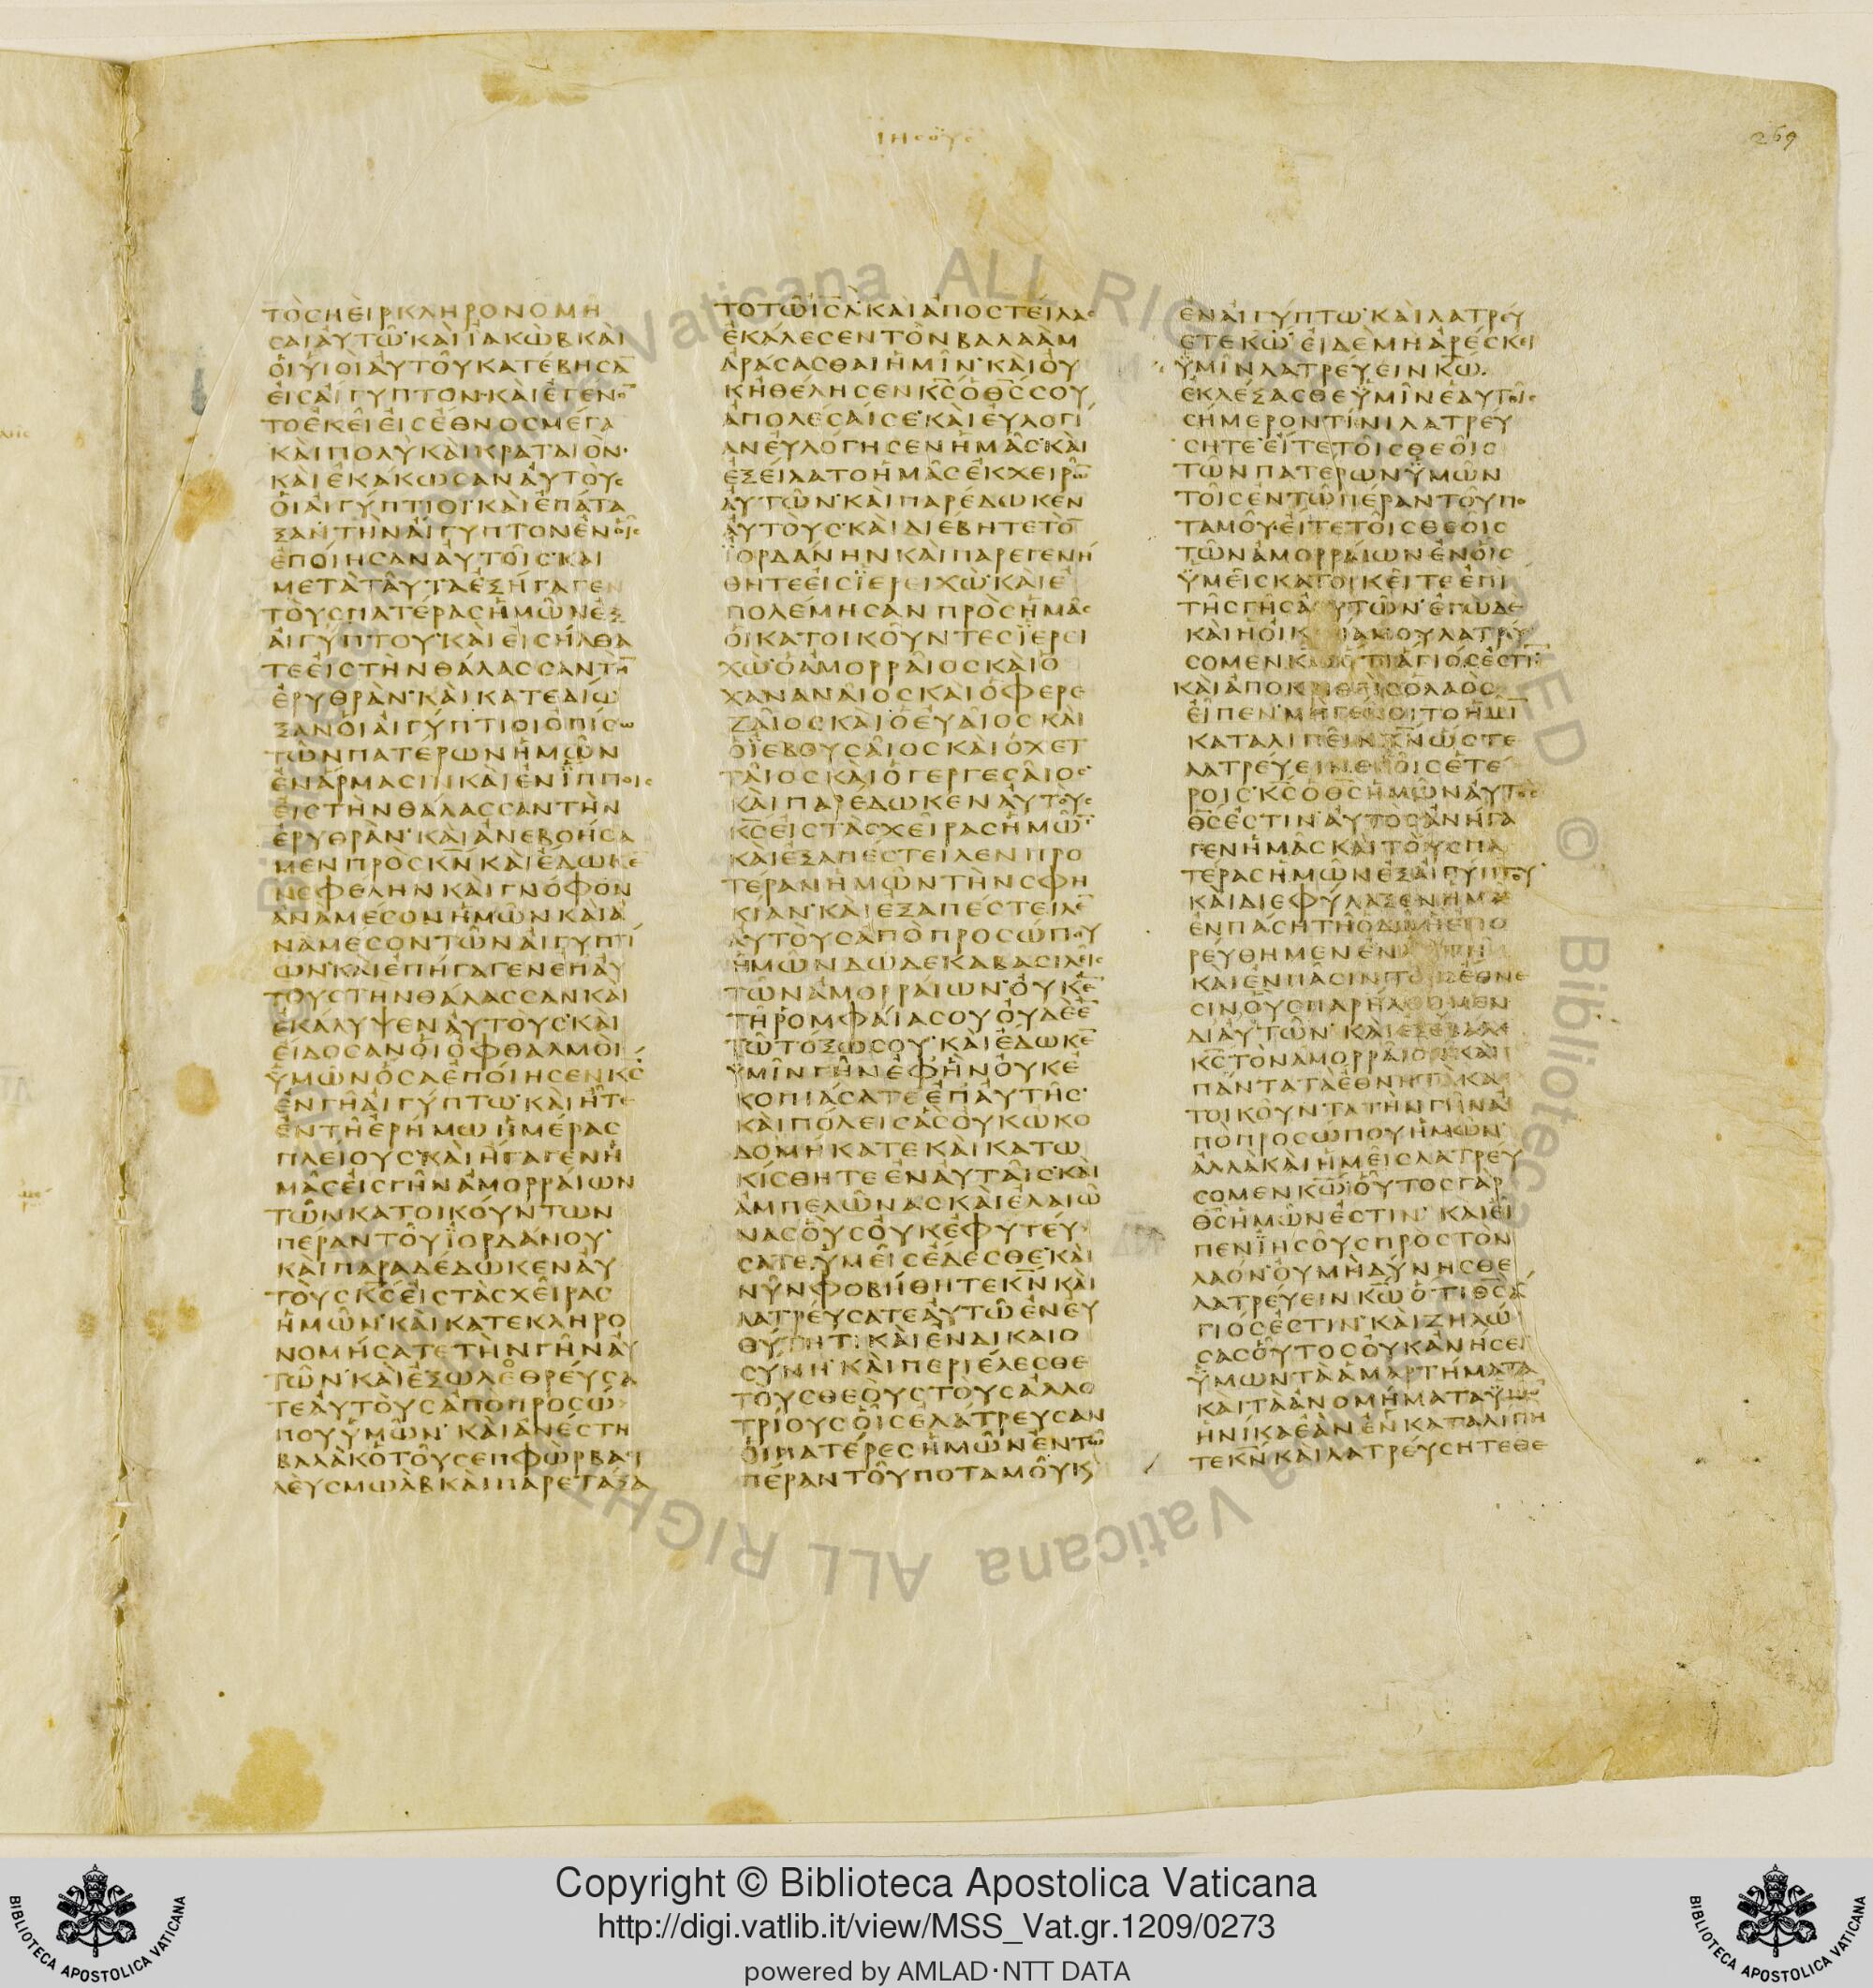 ΙΗСΟΥС
269
ΤῸСΗÈΙΡΚΛΗΡΟΝΟΜΗ
СΑΙΑΥΤΩ·ΚΑΙΙΑΚΩΒΚΑΙ
ΟΙΥΙΟΙΑΥΤΟΥΚΑΤΕΒΗСΑ̅
ΕΙСΑΙΓΥΠΤΟΝ·ΚΑΙΕΓΕΝΟ̅
ΤΟΕΚΕΙΕΙСΕΘΝΟСΜΕΓΑ
ΚΑΙΠΟΛΥΚΑΙΚΡΑΤΑΙΟΝ·
ΚΑΙΕΚΑΚΩСΑΝΑΥΤΟΥС
ΟΙΑΙΓΥΠΤΙΟΙ·ΚΑΙΕΠΑΤΑ
ΞΑΝΤΗΝΑΙΓΥΠΤΟΝΕΝΟΙС
ΕΠΟΙΗСΑΝΑΥΤΟΙС·ΚΑΙ
ΜΕΤΑΤΑΥΤΑΕΞΗΓΑΓΕΝ
ΤΟΥСΠΑΤΕΡΑСΗΜΩΝΕΞ
ΑΙΓΥΠΤΟΥ·ΚΑΙΕΙСΗΛΘΑ
ΤΕΕΙСΤΗΝΘΑΛΑССΑΝΤΗ̅
ΕΡΥΘΡΑΝ·ΚΑΙΚΑΤΕΔΙΩ
ΞΑΝΟΙΑΙΓΥΠΤΙΟΙΟΠΙСΩ
ΤΩΝΠΑΤΕΡΩΝΗΜΩΝ
ΕΝΑΡΜΑСΙΝΚΑΙΕΝΪΠΠΟΙС
ΕΙСΤΗΝΘΑΛΑССΑΝΤΗΝ
ΕΡΥΘΡΑΝ·ΚΑΙΑΝΕΒΟΗСΑ
ΜΕΝΠΡΟСΚ̅Ν̅ΚΑΙΕΔΩΚΕ̅
ΝΕΦΕΛΗΝΚΑΙΓΝΟΦΟΝ
ΑΝΑΜΕСΟΝΗΜΩΝΚΑΙΑ
ΝΑΜΕСΟΝΤΩΝΑΙΓΥΠΤΙ
ΩΝ·ΚΑΙΕΠΗΓΑΓΕΝΕΠΑΥ
ΤΟΥСΤΗΝΘΑΛΑССΑΝΚΑΙ
ΕΚΑΛΥΨΕΝΑΥΤΟΥС·ΚΑΙ
ΕΙΔΟСΑΝΟΙΟΦΘΑΛΜΟΙ
ΥΜΩΝΟСΑΕΠΟΙΗСΕΝΚ̅С̅
ΕΝΓΗΑΙΓΥΠΤΩ·ΚΑΙΗΤΕ
ΕΝΤΗΕΡΗΜΩΗΜΕΡΑС
ΠΛΕΙΟΥС·ΚΑΙΗΓΑΓΕΝΗ
ΜΑСΕΙСΓΗΝΑΜΟΡΡΑΙΩΝ
ΤΩΝΚΑΤΟΙΚΟΥΝΤΩΝ
ΠΕΡΑΝΤΟΥΪΟΡΔΑΝΟΥ·
ΚΑΙΠΑΡΑΔΕΔΩΚΕΝΑΥ
ΤΟΥСΚ̅С̅ΕΙСΤΑСΧΕΙΡΑС
ΗΜΩΝ·ΚΑΙΚΑΤΕΚΛΗΡΟ
ΝΟΜΗСΑΤΕΤΗΝΓΗΝΑΥ
ΤΩΝ·ΚΑΙΕΞΩΛΕΘΡΕΥСΑ
ΤΕΑΥΤΟΥСΑΠΟΠΡΟСΩ
ΠΟΥΥΜΩΝ·ΚΑΙΑΝΕСΤΗ
ΒΑΛΑΚΟΤΟΥСΕΠΦΩΡΒΑСΙ
ΛΕΥСΜΩΑΒΚΑΙΠΑΡΕΤΑΞΑ
ΤΟΤΩΙ̅С̅Λ̅·ΚΑΙΑΠΟСΤΕΙΛΑС
ΕΚΑΛΕСΕΝΤΟΝΒΑΛΑΑΜ
ΑΡΑСΑСΘΑΙΗΜΙΝ·ΚΑΙΟΥ
ΚΗΘΕΛΗСΕΝΚ̅С̅ΟΘ̅С̅СΟΥ
ΑΠΟΛΕСΑΙСΕ·ΚΑΙΕΥΛΟΓΙ
ΑΝΕΥΛΟΓΗСΕΝΗΜΑС·ΚΑΙ
ΕΞΕΙΛΑΤΟΗΜΑСΕΚΧΕΙΡΩ̅
ΑΥΤΩΝ·ΚΑΙΠΑΡΕΔΩΚΕΝ
ΑΥΤΟΥС·ΚΑΙΔΙΕΒΗΤΕΤΟ̅
ΪΟΡΔΑΝΗΝΚΑΙΠΑΡΕΓΕΝΗ
ΘΗΤΕΕΙСΪΕΡΕΙΧΩ·ΚΑΙΕ
ΠΟΛΕΜΗСΑΝΠΡΟСΗΜΑС
ΟΙΚΑΤΟΙΚΟΥΝΤΕСΪΕΡΕΙ
ΧΩ·ΟΑΜΟΡΡΑΙΟСΚΑΙΟ
ΧΑΝΑΝΑΙΟСΚΑΙΟΦΕΡΕ
ΖΑΙΟСΚΑΙΟΕΥΑΙΟСΚΑΙ
ΟΪΕΒΟΥСΑΙΟСΚΑΙΟΧΕΤ
ΤΑΙΟСΚΑΙΟΓΕΡΓΕСΑΙΟС·
ΚΑΙΠΑΡΕΔΩΚΕΝΑΥΤΟΥС
Κ̅С̅ΕΙСΤΑСΧΕΙΡΑСΗΜΩ̅·
ΚΑΙΕΞΑΠΕСΤΕΙΛΕΝΠΡΟ
ΤΕΡΑΝΗΜΩΝΤΗΝСΦΗ
ΚΙΑΝ·ΚΑΙΕΞΑΠΕСΤΕΙΛΕ̅
ΑΥΤΟΥСΑΠΟΠΡΟСΩΠΟΥ
ΗΜΩΝΔΩΔΕΚΑΒΑСΙΛΕΙС
ΤΩΝΑΜΟΡΡΑΙΩΝ·ΟΥΚΕ̅
ΤΗΡΟΜΦΑΙΑСΟΥΟΥΔΕΕ̅
ΤΩΤΟΞΩСΟΥ·ΚΑΙΕΔΩΚΕ̅
ΥΜΙΝΓΗΝΕΦΗΝΟΥΚΕ
ΚΟΠΙΑСΑΤΕΕΠΑΥΤΗС·
ΚΑΙΠΟΛΕΙСΑСΟΥΚΩΚΟ
ΔΟΜΗΚΑΤΕΚΑΙΚΑΤΩ
ΚΙСΘΗΤΕΕΝΑΥΤΑΙС·ΚΑΙ
ΑΜΠΕΛΩΝΑСΚΑΙΕΛΑΙΩ
ΝΑСΟΥСΟΥΚΕΦΥΤΕΥ
СΑΤΕΥΜΕΙСΕΔΕСΘΕ·ΚΑΙ
ΝΥΝΦΟΒΗΘΗΤΕΚ̅Ν̅ΚΑΙ
ΛΑΤΡΕΥСΑΤΕΑΥΤΩΕΝΕΥ
ΘΥΤΗΤΙΚΑΙΕΝΔΙΚΑΙΟ
СΥΝΗ·ΚΑΙΠΕΡΙΕΛΕСΘΕ
ΤΟΥСΘΕΟΥСΤΟΥСΑΛΛΟ
ΤΡΙΟΥСΟΙСΕΛΑΤΡΕΥСΑΝ
ΟΙΠΑΤΕΡΕСΗΜΩΝΕΝΤΩ
ΠΕΡΑΝΤΟΥΠΟΤΑΜΟΥΚϚ
ΕΝΑΙΓΥΠΤΩ·ΚΑΙΛΑΤΡΕΥ
ΕΤΕΚ̅Ω̅·ΕΙΔΕΜΗΑΡΕСΚΕΙ
ΫΜΙΝΛΑΤΡΕΥΕΙΝΚ̅Ω̅.
ΕΚΛΕΞΑСΘΕΫΜΙΝΕΑΥΤΟΙС
СΗΜΕΡΟΝΤΙΝΙΛΑΤΡΕΥ
СΗΤΕ·ΕΙΤΕΤΟΙСΘΕΟΙС
ΤΩΝΠΑΤΕΡΩΝΫΜΩΝ
ΤΟΙСΕΝΤΩΠΕΡΑΝΤΟΥΠΟ
ΤΑΜΟΥ·ΕΙΤΕΤΟΙСΘΕΟΙС
ΤΩΝΑΜΟΡΡΑΙΩΝΕΝΟΙС
ΫΜΕΙСΚΑΤΟΙΚΕΙΤΕΕΠΙ
ΤΗСΓΗСΑΥΤΩΝ·ΕΓΩΔΕ
ΚΑΙΗΟΙΚΙΑΜΟΥΛΑΤΡΕΥ
СΟΜΕΝΚ̅Ω̅ΟΤΙΑΓΙΟСΕСΤΙ̅·
ΚΑΙΑΠΟΚΡΙΘΕΙСΟΛΑΟС
ΕΙΠΕΝ·ΜΗΓΕΝΟΙΤΟΗΜΙ̅
ΚΑΤΑΛΙΠΕΙΝΚ̅Ν̅ΩСΤΕ
ΛΑΤΡΕΥΕΙΝΘΕΟΙСΕΤΕ
ΡΟΙС·Κ̅С̅ΟΘ̅С̅ΗΜΩΝΑΥΤΟС
Θ̅С̅ΕСΤΙΝ·ΑΥΤΟСΑΝΗΓΑ
ΓΕΝΗΜΑСΚΑΙΤΟΥСΠΑ
ΤΕΡΑСΗΜΩΝΕΞΑΙΓΥΠΤΟΥ·
ΚΑΙΔΙΕΦΥΛΑΞΕΝΗΜΑС
ΕΝΠΑСΗΤΗΟΔΩΗΕΠΟ
ΡΕΥΘΗΜΕΝΕΝΑΥΤΗ
ΚΑΙΕΝΠΑСΙΝΤΟΙСΕΘΝΕ
СΙΝΟΥСΠΑΡΗΛΘΟΜΕΝ
ΔΙΑΥΤΩΝ·ΚΑΙΕΞΕΒΑΛΕ
Κ̅С̅ΤΟΝΑΜΟΡΡΑΙΟΝΚΑΙ
ΠΑΝΤΑΤΑΕΘΝΗΤΑΚΑ
ΤΟΙΚΟΥΝΤΑΤΗΝΓΗΝΑ
ΠΟΠΡΟСΩΠΟΥΗΜΩΝ·
ΑΛΛΑΚΑΙΗΜΕΙСΛΑΤΡΕΥ
СΟΜΕΝΚ̅Ω̅·ΟΥΤΟСΓΑΡ
Θ̅С̅ΗΜΩΝΕСΤΙΝ·ΚΑΙΕΙ
ΠΕΝΪΗСΟΥСΠΡΟСΤΟΝ
ΛΑΟΝ·ΟΥΜΗΔΥΝΗСΘΕ
ΛΑΤΡΕΥΕΙΝΚ̅Ω̅ΟΤΙΘ̅С̅Α
ΓΙΟСΕСΤΙΝ·ΚΑΙΖΗΛΩ
СΑСΟΥΤΟСΟΥΚΑΝΗСΕΙ
ΫΜΩΝΤΑΑΜΑΡΤΗΜΑΤΑ
ΚΑΙΤΑΑΝΟΜΗΜΑΤΑΫΜΩ̅
ΗΝΙΚΑΕΑΝΕΝΚΑΤΑΛΙΠΗ
ΤΕΚ̅Ν̅ΚΑΙΛΑΤΡΕΥСΗΤΕΘΕ
Copyright © Biblioteca Apostolica Vaticana
http://digi.vatlib.it/view/MSS_Vat.gr.1209/0273
powered by AMLAD·NTT DATA
BIBLIOTECA APOSTOLICA VATICANA
BIBLIOTECA APOSTOLICA VATICANA